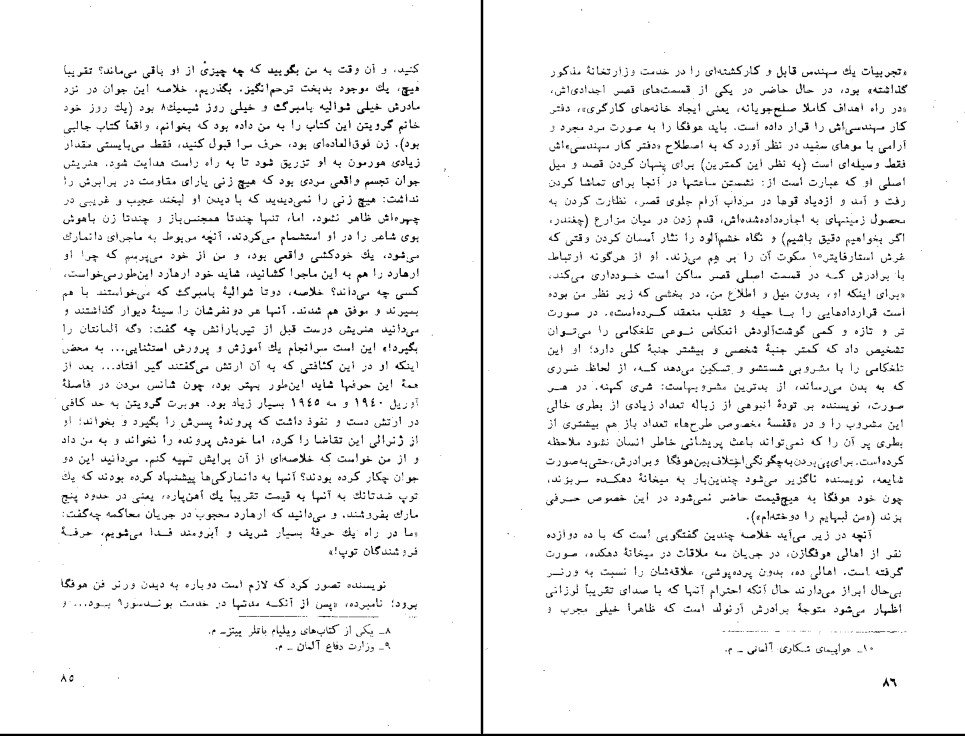 کنید، و آن وقت به من بگویید که چه چیزی از او باقی می‌ماند؟ تقریباً
هیچ، یك موجود بدبخت ترحم‌انگیز. بگذریم. خلاصه این جوان در نزد
مادرش خیلی شوالیه بامبرگ و خیلی روز شیمیك۸ بود (یك روز خود
خانم گرویتن این کتاب را به من داده بود که بخوانم، واقعاً کتاب جالبی
بود). زن فوق‌العاده‌ای بود، حرف مرا قبول کنید، فقط می‌بایستی مقدار
زیادی هورمون به او تزریق شود تا به راه راست هدایت شود. هنریش
جوان تجسم واقعی مردی بود که هیچ زنی یارای مقاومت در برابرش را
نداشت: هیچ زنی را نمی‌دیدید که با دیدن او لبخند عجیب و غریبی در
چهره‌اش ظاهر نشود. اما، تنها چندتا همجنس‌باز و چندتا زن باهوش
بوی شاعر را در او استشمام می‌کردند. آنچه مربوط به ماجرای دانمارك
می‌شود، یك خودکشی واقعی بود، و من از خود می‌پرسم که چرا او
ارهارد را هم به این ماجرا کشانید، شاید خود ارهارد این‌طور می‌خواست،
کسی چه می‌داند؟ خلاصه، دوتا شوالیهٔ بامبرگ که می‌خواستند با هم
بمیرند و موفق هم شدند. آنها هر دونفرشان را سینهٔ دیوار گذاشتند و
می‌دانید هنریش درست قبل از تیربارانش چه گفت: «گه آلمانتان را
بگیرد!» این است سرانجام یك آموزش و پرورش استثنایی... به محض
اینکه او در این کثافتی که به آن ارتش می‌گفتند گیر افتاد... بعد از
همهٔ این حرفها شاید این‌طور بهتر بود، چون شانس مردن در فاصلهٔ
آوریل ۱۹۴۰ و مه ۱۹۴۵ بسیار زیاد بود. هوبرت گرویتن به حد کافی
در ارتش دست و نفوذ داشت که پروندهٔ پسرش را بگیرد و بخواند؛ او
از ژنرالی این تقاضا را کرد، اما خودش پرونده را نخواند و به من داد
و از من خواست که خلاصه‌ای از آن برایش تهیه کنم. می‌دانید این دو
جوان چکار کرده بودند؟ آنها به دانمارکی‌ها پیشنهاد کرده بودند که یك
توپ ضدتانك به آنها به قیمت تقریباً یك آهن‌پاره، یعنی در حدود پنج
مارك بفروشند. و می‌دانید که ارهارد محجوب در جریان محاکمه چه‌گفت:
«ما در راه یك حرفهٔ بسیار شریف و آبرومند فدا می‌شویم، حرفهٔ
فروشندگان توپ!»
نویسنده تصور کرد که لازم است دوباره به دیدن ورنر فن هوفگا
برود؛ نامبرده، «پس از آنکه مدتها در خدمت بوندسور۹ بود... و
۸ـ یکی از کتاب‌های ویلیام باتلر ییتزـ م.
۹ـ وزارت دفاع آلمان ـ م.
۸۵
«تجربیات یك مهندس قابل و کارکشته‌ای را در خدمت وزارتخانهٔ مذکور
گذاشته» بود، در حال حاضر در یکی از قسمت‌های قصر اجدادی‌اش،
«در راه اهداف کاملا صلح‌جویانه، یعنی ایجاد خانه‌های کارگری»، دفتر
کار مهندسی‌اش را قرار داده است. باید هوفگا را به صورت مرد مجرد و
آرامی با موهای سفید در نظر آورد که به اصطلاح «دفتر کار مهندسی»اش
فقط وسیله‌ای است (به نظر این کمترین) برای پنهان کردن قصد و میل
اصلی او که عبارت است از: نشستن ساعتها در آنجا برای تماشا کردن
رفت و آمد و ازدیاد قوها در مرداب آرام جلوی قصر، نظارت کردن به
محصول زمینهای به اجاره‌داده‌شده‌اش، قدم زدن در میان مزارع (چغندر،
اگر بخواهیم دقیق باشیم) و نگاه خشم‌آلود را نثار آسمان کردن وقتی که
غرش استارفایتر۱۰ سکوت آن را بر هم می‌زند. او از هرگونه ارتباط
با برادرش که در قسمت اصلی قصر ساکن است خودداری می‌کند،
«برای اینکه او، بدون میل و اطلاع من، در بخشی که زیر نظر من بوده
است قراردادهایی را با حیله و تقلب منعقد کرده‌است». در صورت
تر و تازه و کمی گوشت‌آلودش انعکاس نوعی تلخکامی را می‌توان
تشخیص داد که کمتر جنبهٔ شخصی و بیشتر جنبهٔ کلی دارد؛ او این
تلخکامی را با مشروبی شستشو و تسکین می‌دهد که، از لحاظ ضرری
که به بدن می‌رساند، از بدترین مشروبهاست: شری کهنه. در هر
صورت، نویسنده بر تودهٔ انبوهی از زباله تعداد زیادی از بطری خالی
این مشروب را و در «قفسهٔ مخصوص طرح‌ها» تعداد باز هم بیشتری از
بطری پر آن را که نمی‌تواند باعث پریشانی خاطر انسان نشود ملاحظه
کرده‌است. برای‌پی‌بردن به‌چگونگی اختلاف بین هوفگا و برادرش، حتی به صورت
شایعه، نویسنده ناگزیر می‌شود چندین‌بار به میخانهٔ دهکده سر بزند،
چون خود هوفگا به هیچ‌قیمت حاضر نمی‌شود در این خصوص حرفی
بزند («من لبهایم را دوخته‌ام»).
آنچه در زیر می‌آید خلاصه چندین گفتگویی است که با ده دوازده
نفر از اهالی هوفگازن، در جریان سه ملاقات در میخانهٔ دهکده، صورت
گرفته است. اهالی ده، بدون پرده‌پوشی، علاقه‌شان را نسبت به ورنر
بی‌حال ابراز می‌دارند حال آنکه احترام آنها که با صدای تقریباً لرزانی
اظهار می‌شود متوجهٔ برادرش آرنولد است که ظاهراً خیلی مجرب و
۱۰ـ هواپیمای شکاری آلمانی ـ م.
۸۶